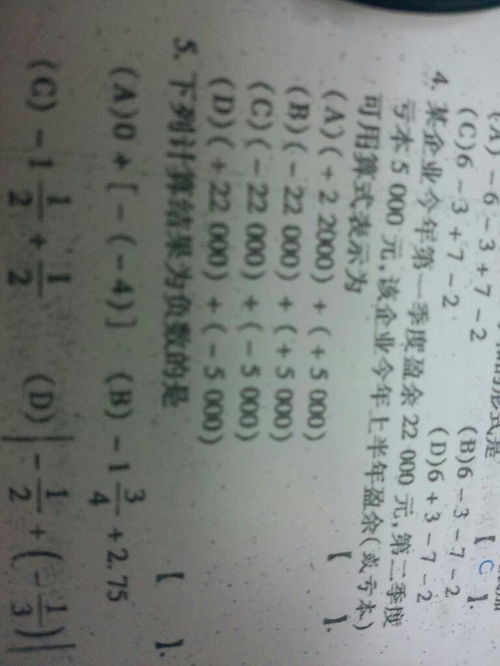 的形式是
【 C 】.
(A) －6－3＋7－2 (B)6－3－7－2
(C)6－3＋7－2 (D)6＋3－7－2
4. 某企业今年第一季度盈余 22 000 元,第二季度
亏本 5 000 元,该企业今年上半年盈余(或亏本)
可用算式表示为 【 】.
(A)(＋2 2000)＋(＋5 000)
(B)(－22 000)＋(＋5 000)
(C)(－22 000)＋(－5 000)
(D)(＋22 000)＋(－5 000)
5. 下列计算结果为负数的是 【 】.
(A)0＋[－(－4)] (B)－1 3/4＋2.75
(C)－1 1/2＋1/2 (D)|－1/2＋(－1/3)|